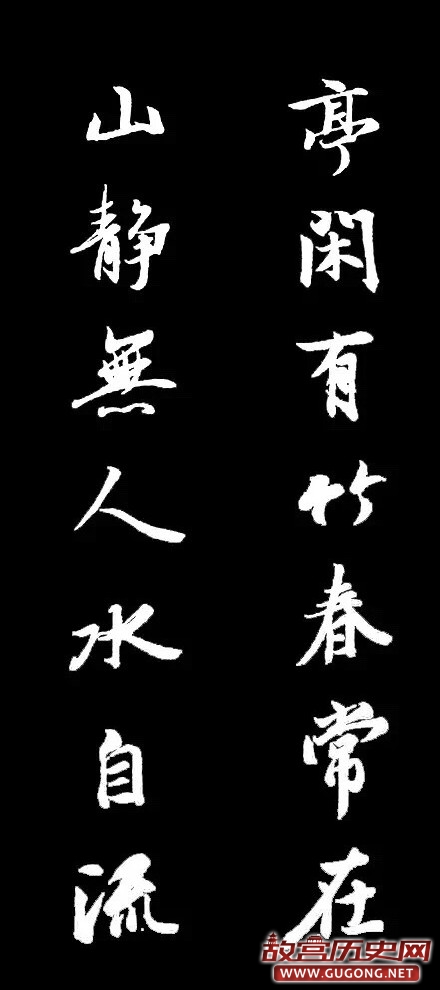 亭閑有竹春常在
山静無人水自流
故宫历史网
WWW.GUGONG.NET